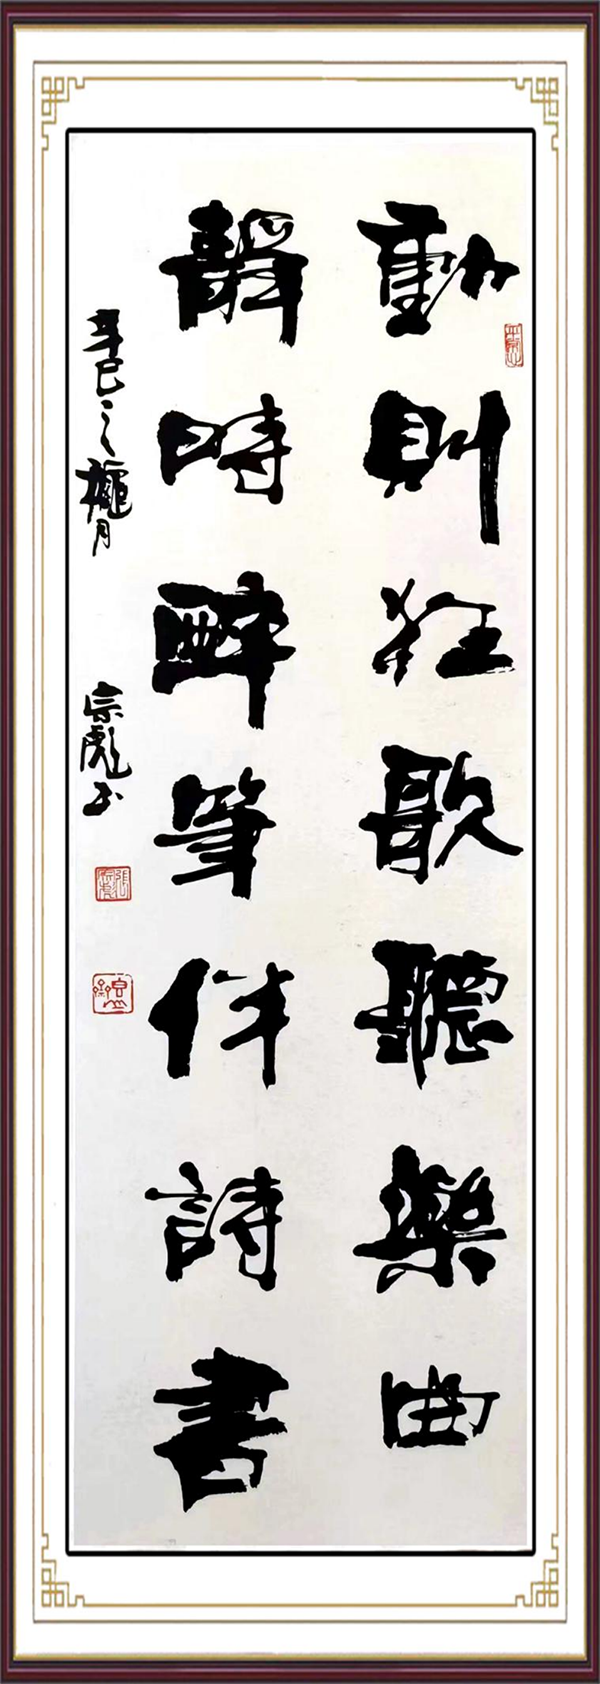 動則狂歌聽樂曲
靜時醉筆伴詩書
辛巳之月
宗彪书